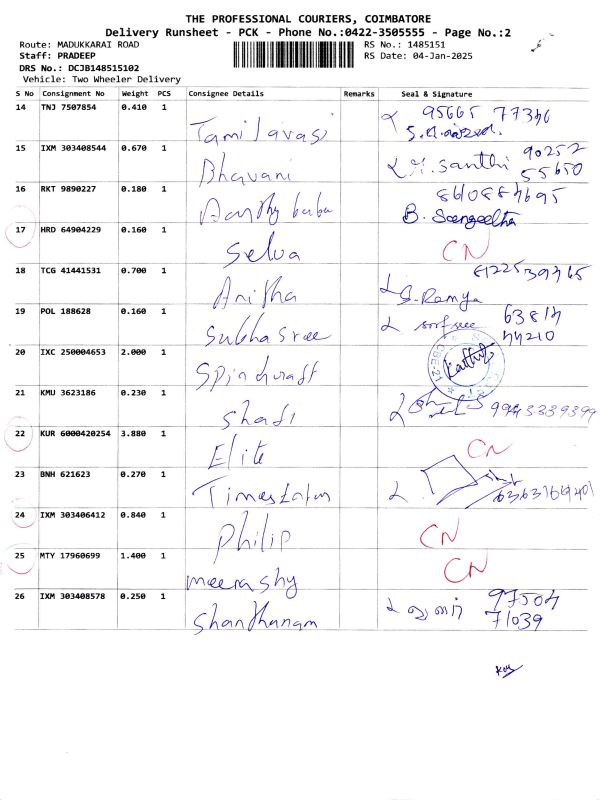 THE PROFESSIONAL COURIERS, COIMBATORE
Delivery Runsheet - PCK - Phone No.:0422-3505555 - Page No.:2
Route: MADUKKARAI ROAD RS No.: 1485151
Staff: PRADEEP RS Date: 04-Jan-2025
DRS No.: DCJB148515102
Vehicle: Two Wheeler Delivery
S No Consignment No Weight PCS Consignee Details Remarks Seal & Signature
14 TNJ 7507854 0.410 1 Tamilavasi 95665 77346
15 IXM 303408544 0.670 1 Bhavani M. Santhi 90252 55650
16 RKT 9890227 0.180 1 babu 8610884695 B. Sangeetha
17 HRD 64904229 0.160 1 Selva CN
18 TCG 41441531 0.700 1 Anitha 8122539765 S. Ramya
19 POL 188628 0.160 1 Subhasree 63814 44210
20 IXC 250004653 2.000 1 Spindcraft CBE-21
21 KMU 3623186 0.230 1 Shadi 9943339399
22 KUR 6000420254 3.880 1 Elite CN
23 BNH 621623 0.270 1
24 IXM 303406412 0.840 1 Philip CN
25 MTY 17960699 1.400 1 meerashy CN
26 IXM 303408578 0.250 1 Shanthanam 97504 71039